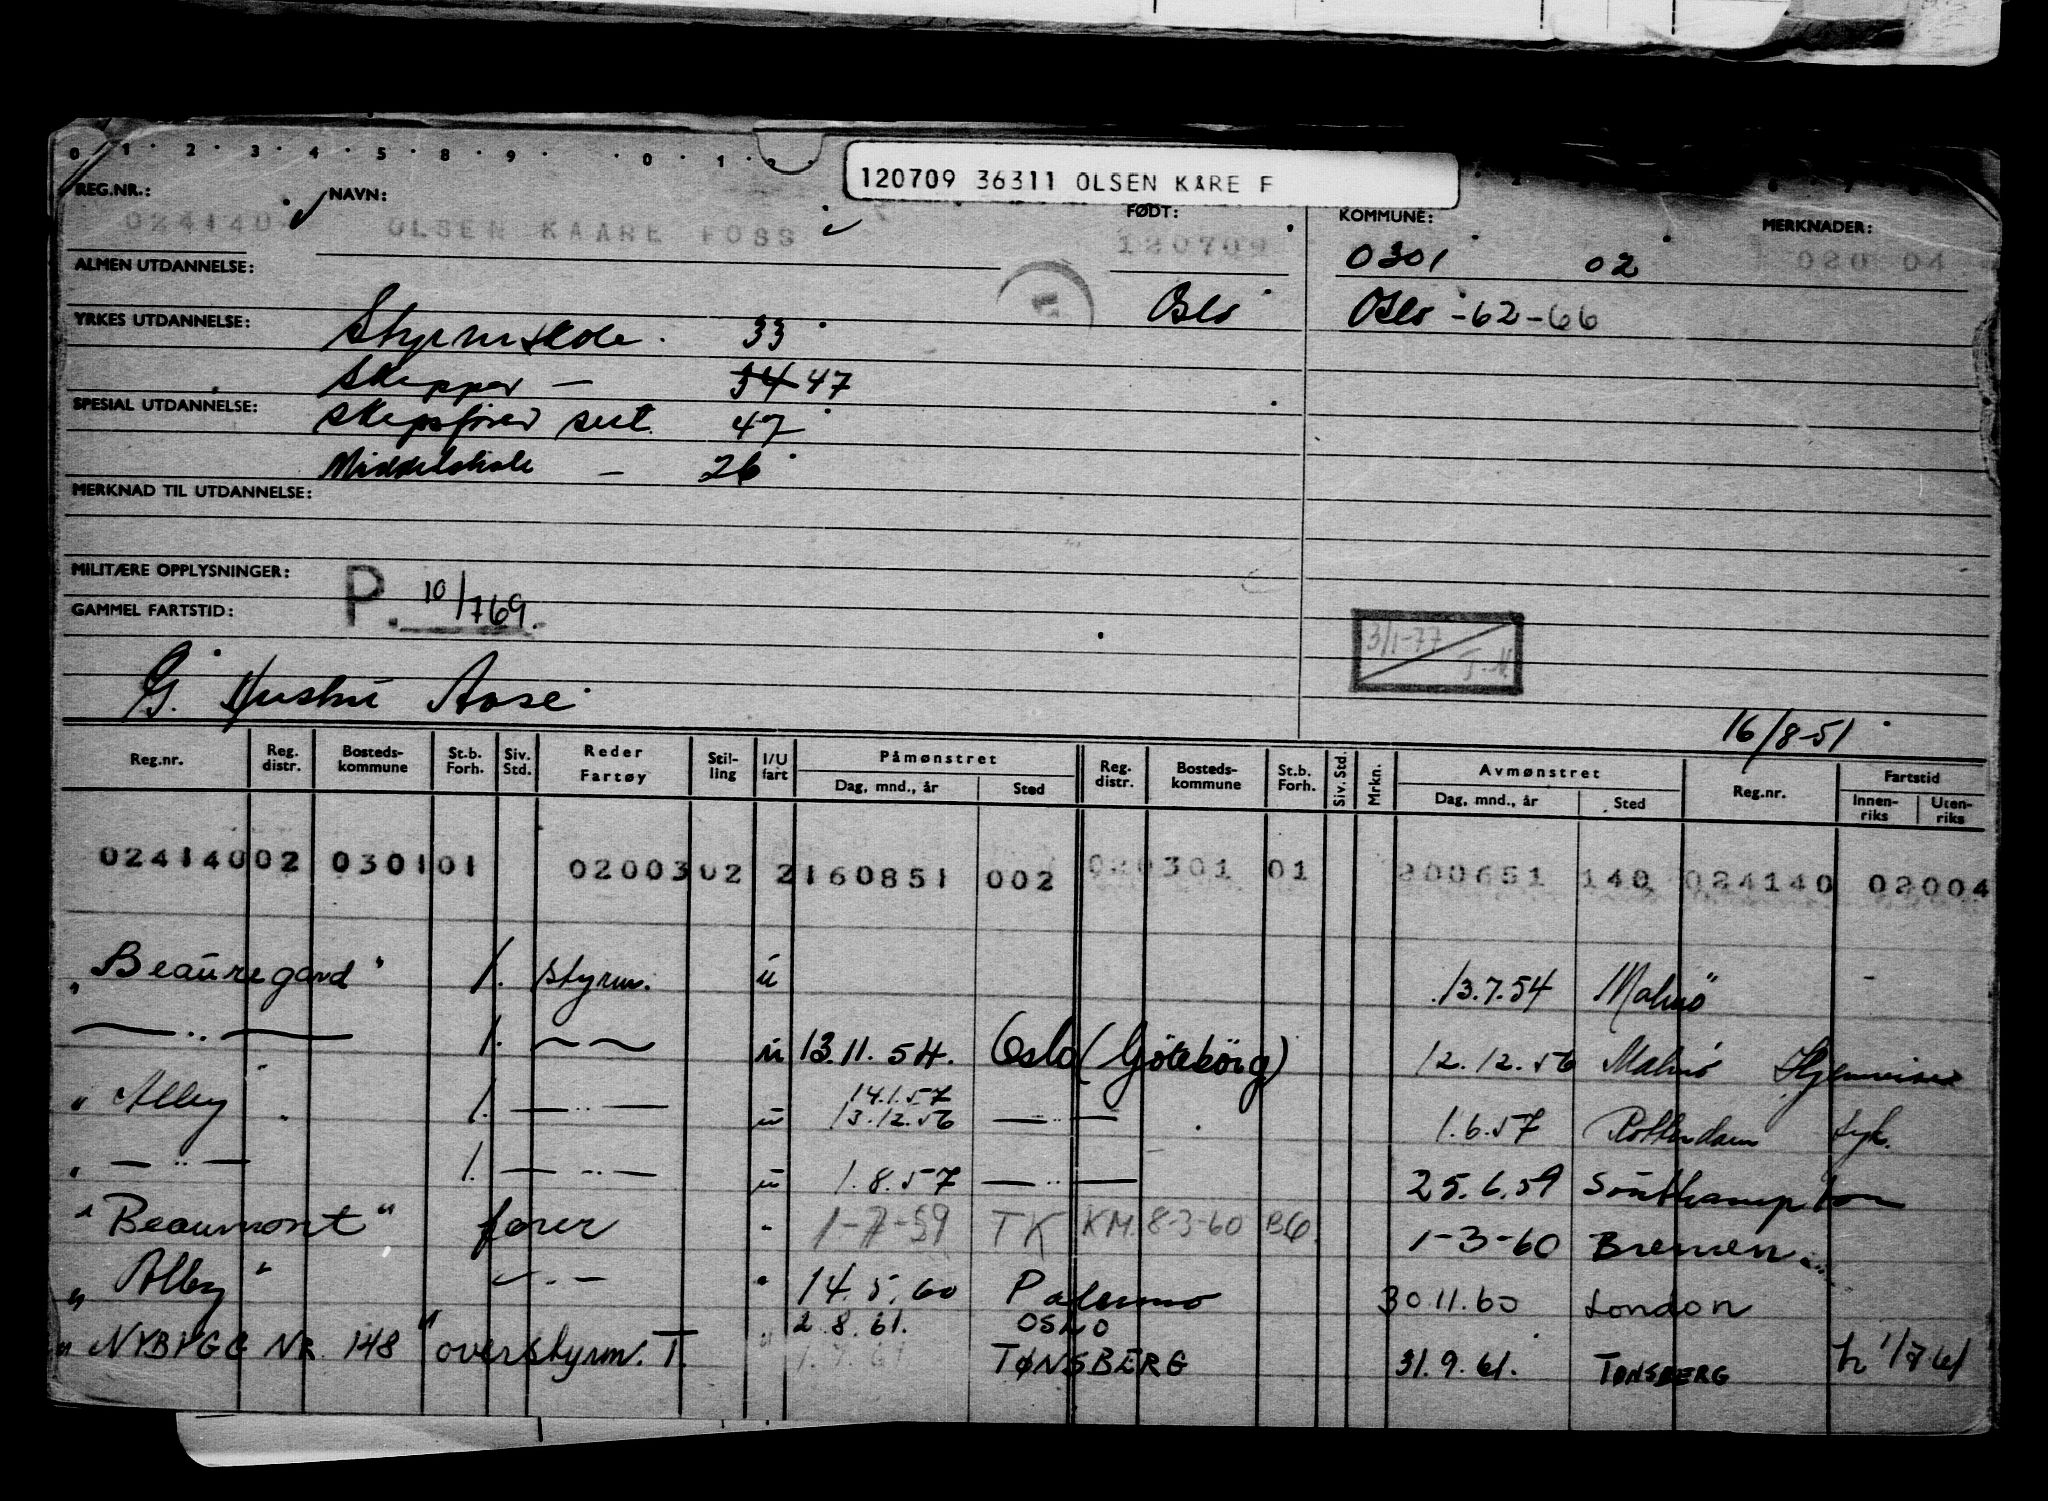 0 · 1 · 2 · 3 · 4 · 5 · 8 · 9 · · 0 · 1 ·
120709 36311 OLSEN KÅRE F
REG.NR.: NAVN: FØDT: KOMMUNE: MERKNADER:
024140 OLSEN KAARE FOSS 120709 0301 02 020 04
ALMEN UTDANNELSE:
Oslo Oslo -62-66
YRKES UTDANNELSE: Styrmskole. 33
Skipper — 34 47
SPESIAL UTDANNELSE: Skipsfører sert. 47
Middelskole — 26
MERKNAD TIL UTDANNELSE:
MILITÆRE OPPLYSNINGER: P. 10/769.
GAMMEL FARTSTID:
3/1-77
G. Hustru Aase
16/8-51
Reg.nr. Reg. distr. Bosteds-kommune St.b. Forh. Siv. Std. Reder Fartøy Stil-ling I/U fart Påmønstret Dag, mnd., år Sted Reg. distr. Bosteds-kommune St.b. Forh. Siv. Std. Mrkn. Avmønstret Dag, mnd., år Sted Reg.nr. Fartstid Innen-riks Uten-riks
024140 02 0301 01 020030 2 2 160851 002 02 0301 01 200651 140 024140 02004
"Beauregard" 1. styrm. u 13.7.54 Malmö
— " — 1. — — u 13.11.54. Oslo (Göteborg) 12.12.56 Malmö Hjemreise
"Alby" 1. — " — u 14.1.57 13.12.56 — " — 1.6.57 Rotterdam syk.
" — " — 1. — " — u 1.8.57 — " — 25.6.59 Southampton
"Beaumont" fører " 1-7-59 TK KM. 8-3-60 BG. 1-3-60 Bremen
"Alby" — " — " 14.5.60 Palermo 30.11.60 London
"NYBYGG NR 148" overstyrm. T. " 2.8.61. OSLO TØNSBERG 31.9.61. TØNSBERG h 1/7 61